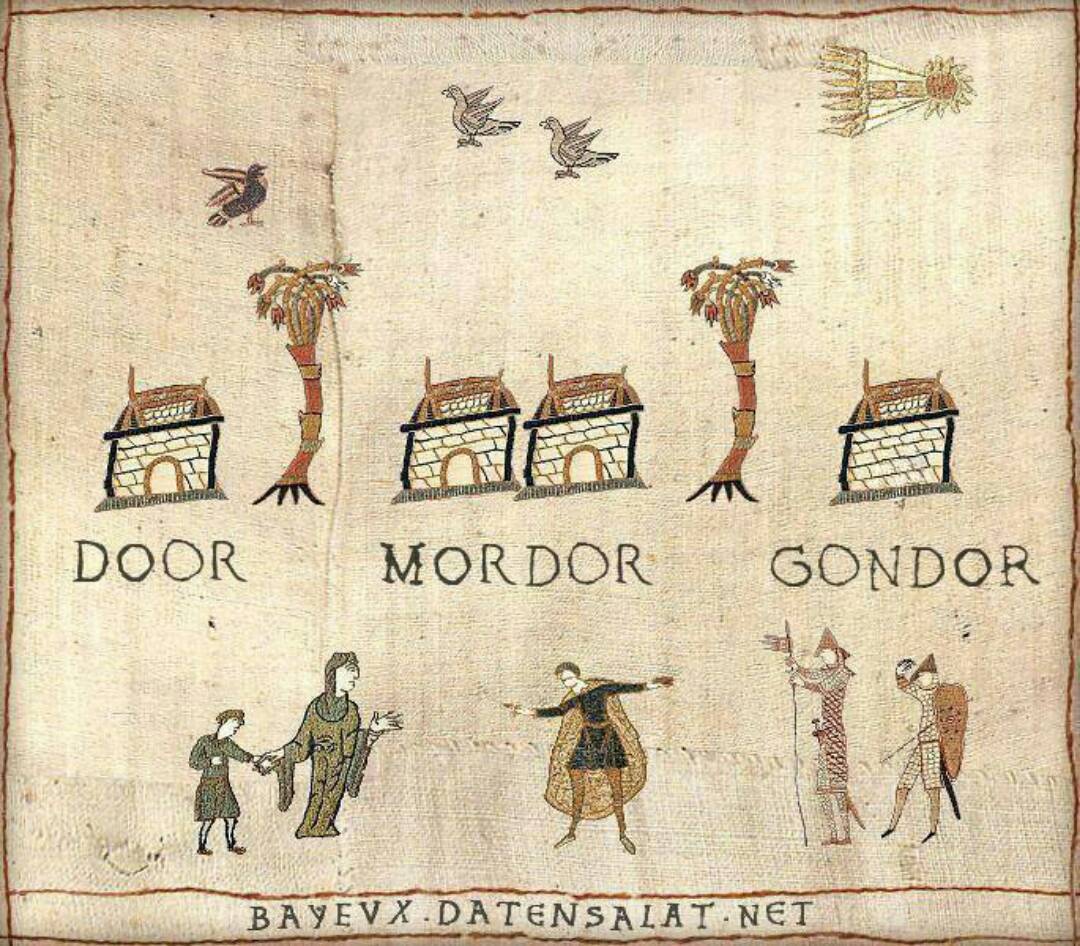 DOOR MORDOR GONDOR
BAYEVX.DATENSALAT.NET